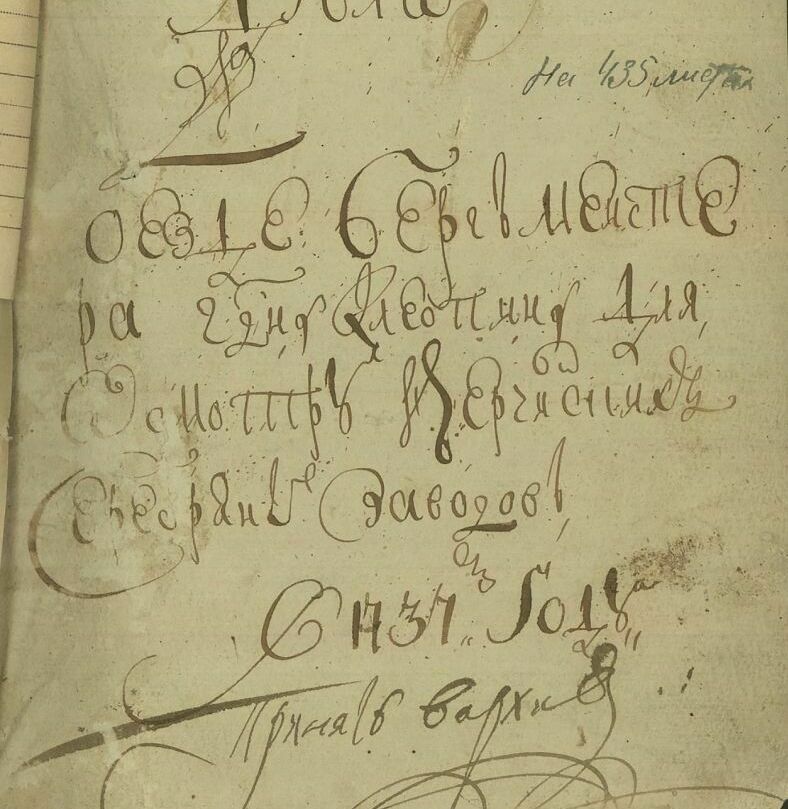 Дѣло
На 435 листах
о езде Бергъмеисте
ра гдну Клеопину для
Осмотръ Нерчинских
Сребряных Заводовъ
С 1737 „ Году „
Принялъ в архив